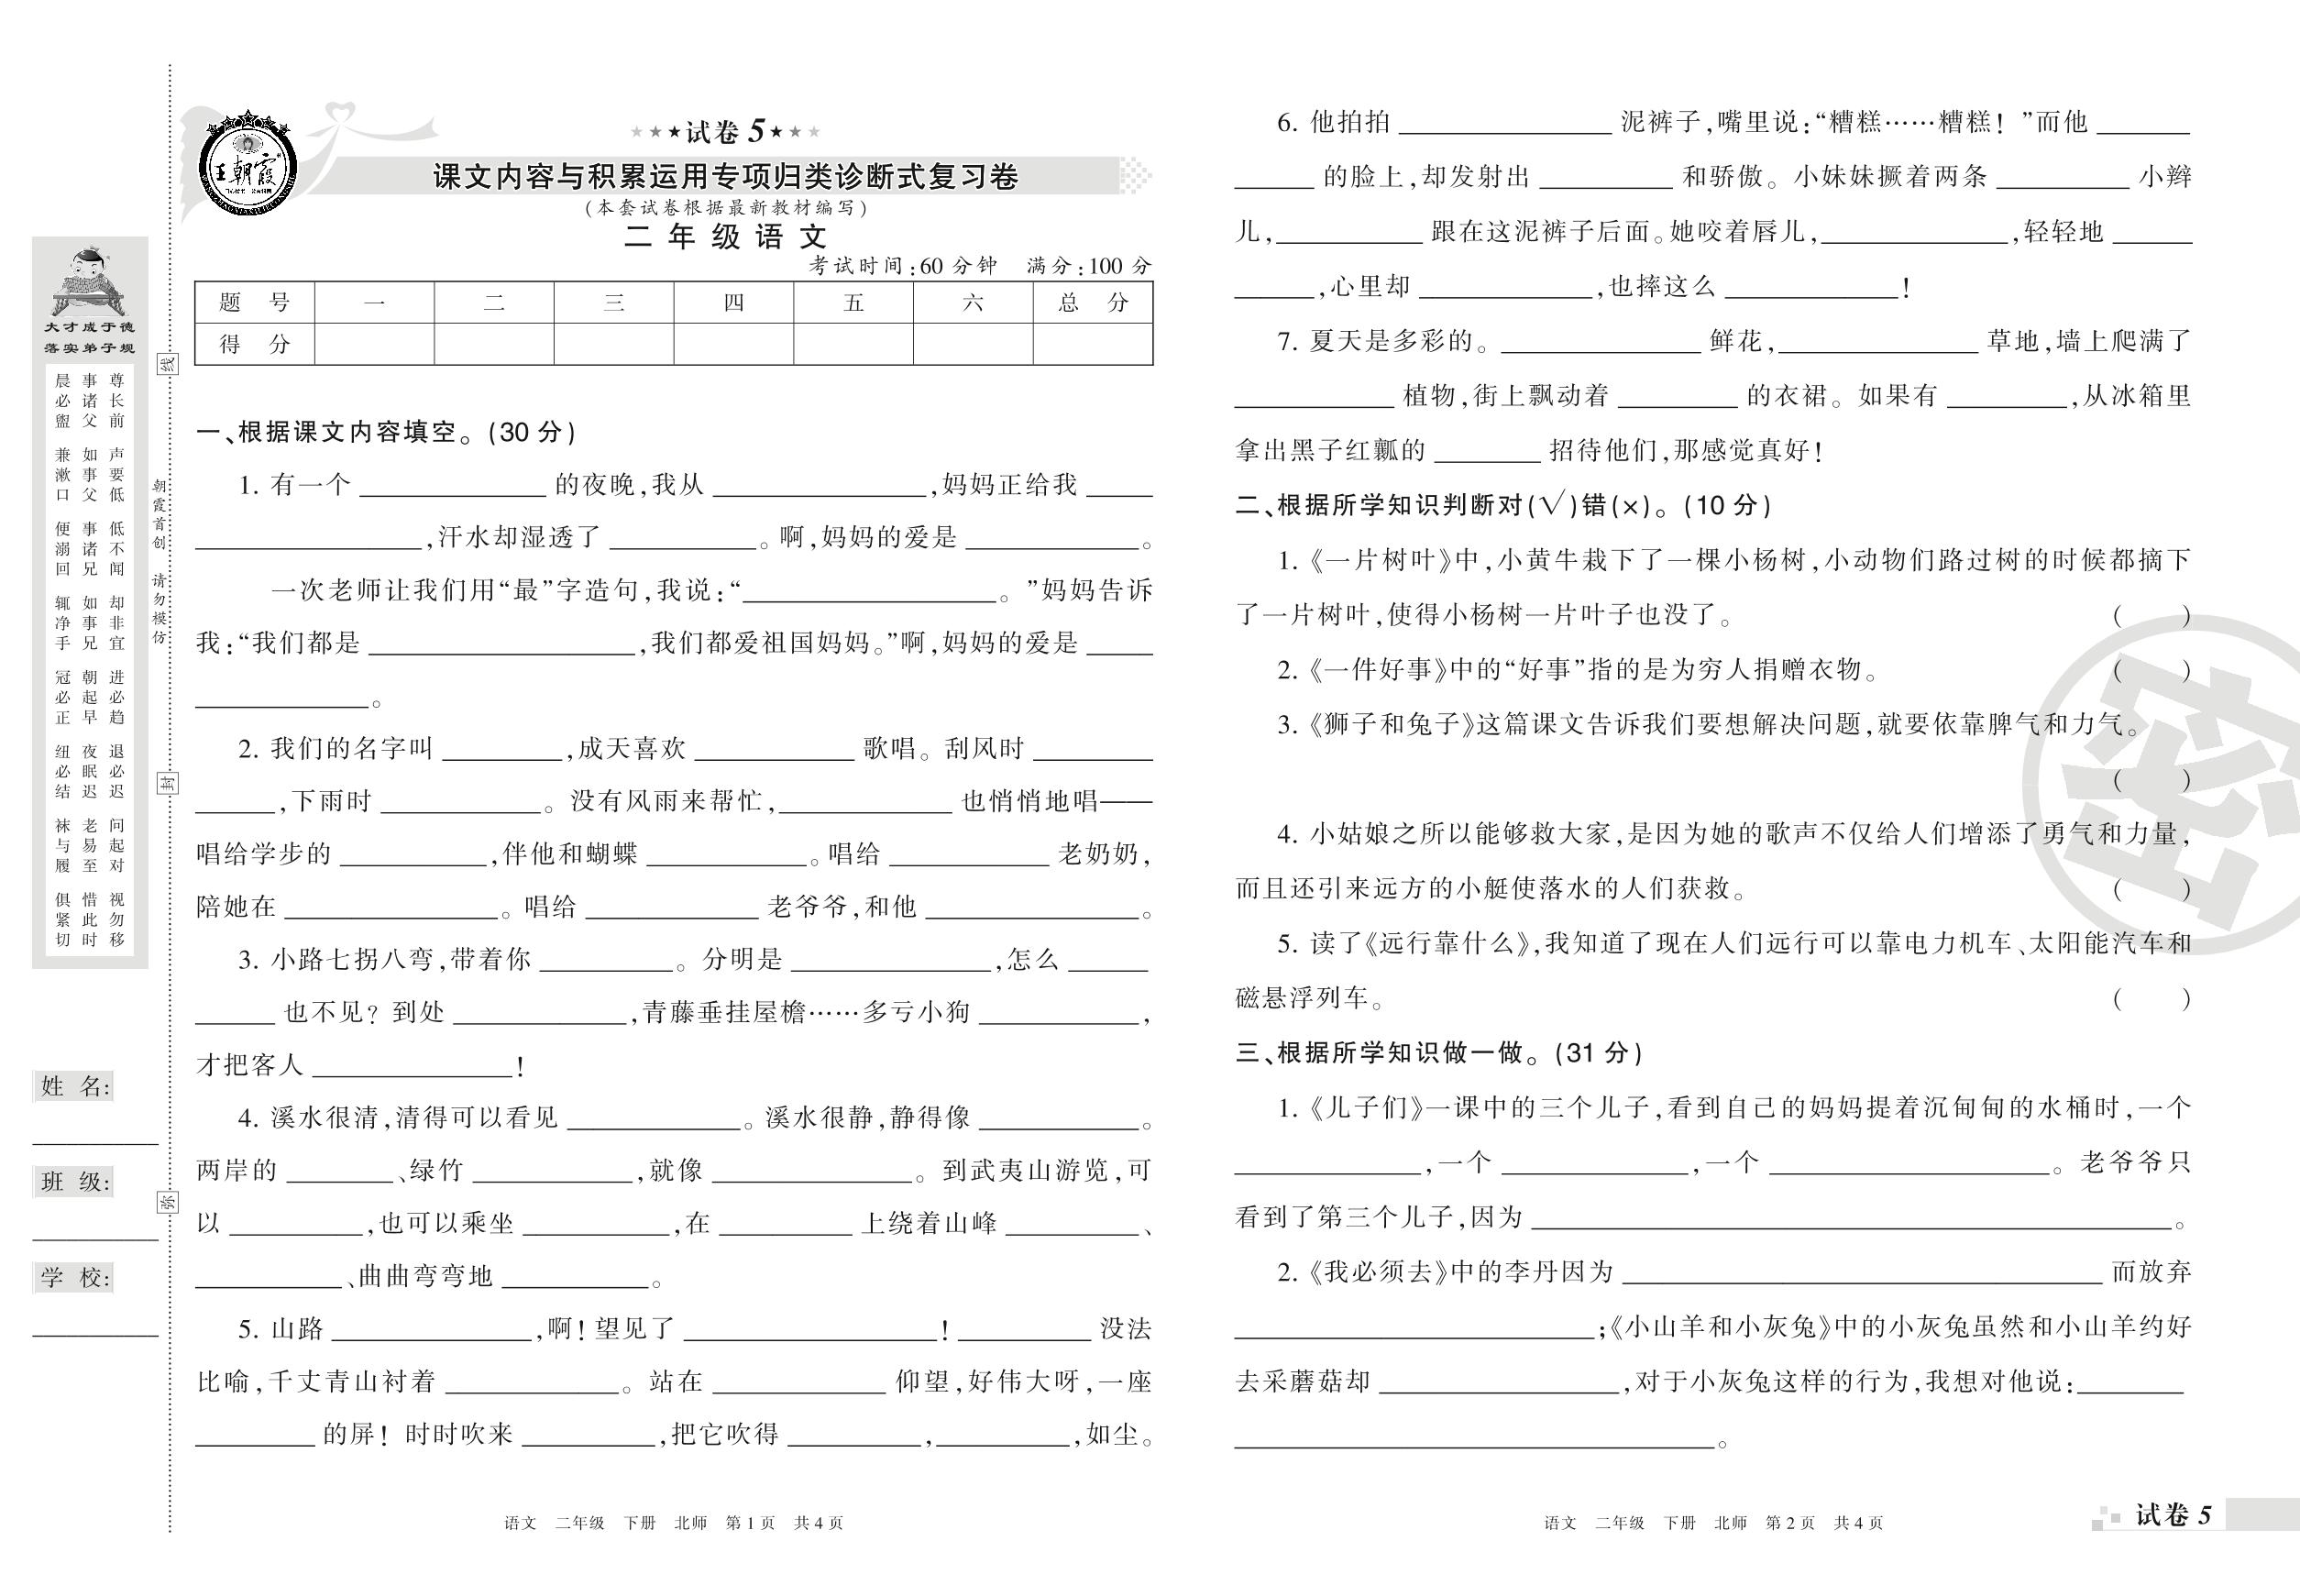 王朝霞
★★★试卷 5★★★
课文内容与积累运用专项归类诊断式复习卷
(本套试卷根据最新教材编写)
二年级语文
考试时间:60 分钟 满分:100 分
题 号 一 二 三 四 五 六 总 分
得 分
大才成于德
落实弟子规
尊长前 声要低 低不闻 却非宜 进必趋 退必迟 问起对 视勿移
事诸父 如事父 事诸兄 如事兄 朝起早 夜眠迟 老易至 惜此时
晨必盥 兼漱口 便溺回 辄净手 冠必正 纽必结 袜与履 俱紧切
朝霞首创 请勿模仿
线
封
弥
姓 名:
班 级:
学 校:
一、根据课文内容填空。(30 分)
1. 有一个 ______ 的夜晚,我从 ______,妈妈正给我 ______
______,汗水却湿透了 ______。啊,妈妈的爱是 ______。
一次老师让我们用“最”字造句,我说:“______。”妈妈告诉
我:“我们都是 ______,我们都爱祖国妈妈。”啊,妈妈的爱是 ______
______。
2. 我们的名字叫 ______,成天喜欢 ______ 歌唱。刮风时 ______
______,下雨时 ______。没有风雨来帮忙,______ 也悄悄地唱——
唱给学步的 ______,伴他和蝴蝶 ______。唱给 ______ 老奶奶,
陪她在 ______。唱给 ______ 老爷爷,和他 ______。
3. 小路七拐八弯,带着你 ______。分明是 ______,怎么 ______
______ 也不见?到处 ______,青藤垂挂屋檐……多亏小狗 ______,
才把客人 ______!
4. 溪水很清,清得可以看见 ______。溪水很静,静得像 ______。
两岸的 ______、绿竹 ______,就像 ______。到武夷山游览,可
以 ______,也可以乘坐 ______,在 ______ 上绕着山峰 ______、
______、曲曲弯弯地 ______。
5. 山路 ______,啊!望见了 ______!______ 没法
比喻,千丈青山衬着 ______。站在 ______ 仰望,好伟大呀,一座
______ 的屏!时时吹来 ______,把它吹得 ______,______,如尘。
语文 二年级 下册 北师 第 1 页 共 4 页
6. 他拍拍 ______ 泥裤子,嘴里说:“糟糕……糟糕!”而他 ______
______ 的脸上,却发射出 ______ 和骄傲。小妹妹撅着两条 ______ 小辫
儿,______ 跟在这泥裤子后面。她咬着唇儿,______,轻轻地 ______
______,心里却 ______,也摔这么 ______!
7. 夏天是多彩的。______ 鲜花,______ 草地,墙上爬满了
______ 植物,街上飘动着 ______ 的衣裙。如果有 ______,从冰箱里
拿出黑子红瓤的 ______ 招待他们,那感觉真好!
二、根据所学知识判断对(√)错(×)。(10 分)
1.《一片树叶》中,小黄牛栽下了一棵小杨树,小动物们路过树的时候都摘下
了一片树叶,使得小杨树一片叶子也没了。 ( )
2.《一件好事》中的“好事”指的是为穷人捐赠衣物。 ( )
3.《狮子和兔子》这篇课文告诉我们要想解决问题,就要依靠脾气和力气。
( )
4. 小姑娘之所以能够救大家,是因为她的歌声不仅给人们增添了勇气和力量,
而且还引来远方的小艇使落水的人们获救。 ( )
5. 读了《远行靠什么》,我知道了现在人们远行可以靠电力机车、太阳能汽车和
磁悬浮列车。 ( )
密
三、根据所学知识做一做。(31 分)
1.《儿子们》一课中的三个儿子,看到自己的妈妈提着沉甸甸的水桶时,一个
______,一个 ______,一个 ______。老爷爷只
看到了第三个儿子,因为 ______。
2.《我必须去》中的李丹因为 ______ 而放弃
______;《小山羊和小灰兔》中的小灰兔虽然和小山羊约好
去采蘑菇却 ______,对于小灰兔这样的行为,我想对他说:______
______。
语文 二年级 下册 北师 第 2 页 共 4 页
试卷 5